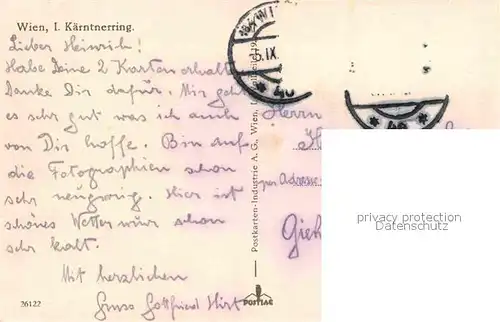 Wien, I. Kärntnerring.
Lieber Heinrich!
Habe Deine 2 Karten erhalten
Danke Dir dafür. Mir geht
es sehr gut was ich auch
von Dir hoffe. Bin auf
die Fotographien schon
sehr neugierig. Hier ist
schönes Wetter nur schon
sehr kalt.
Mit herzlichen
Gruss Gottfried Hirt
26122
Postkarten-Industrie A. G., Wien,
POSTIAG
IX
40
Herrn
per Adresse
privacy protection
Datenschutz